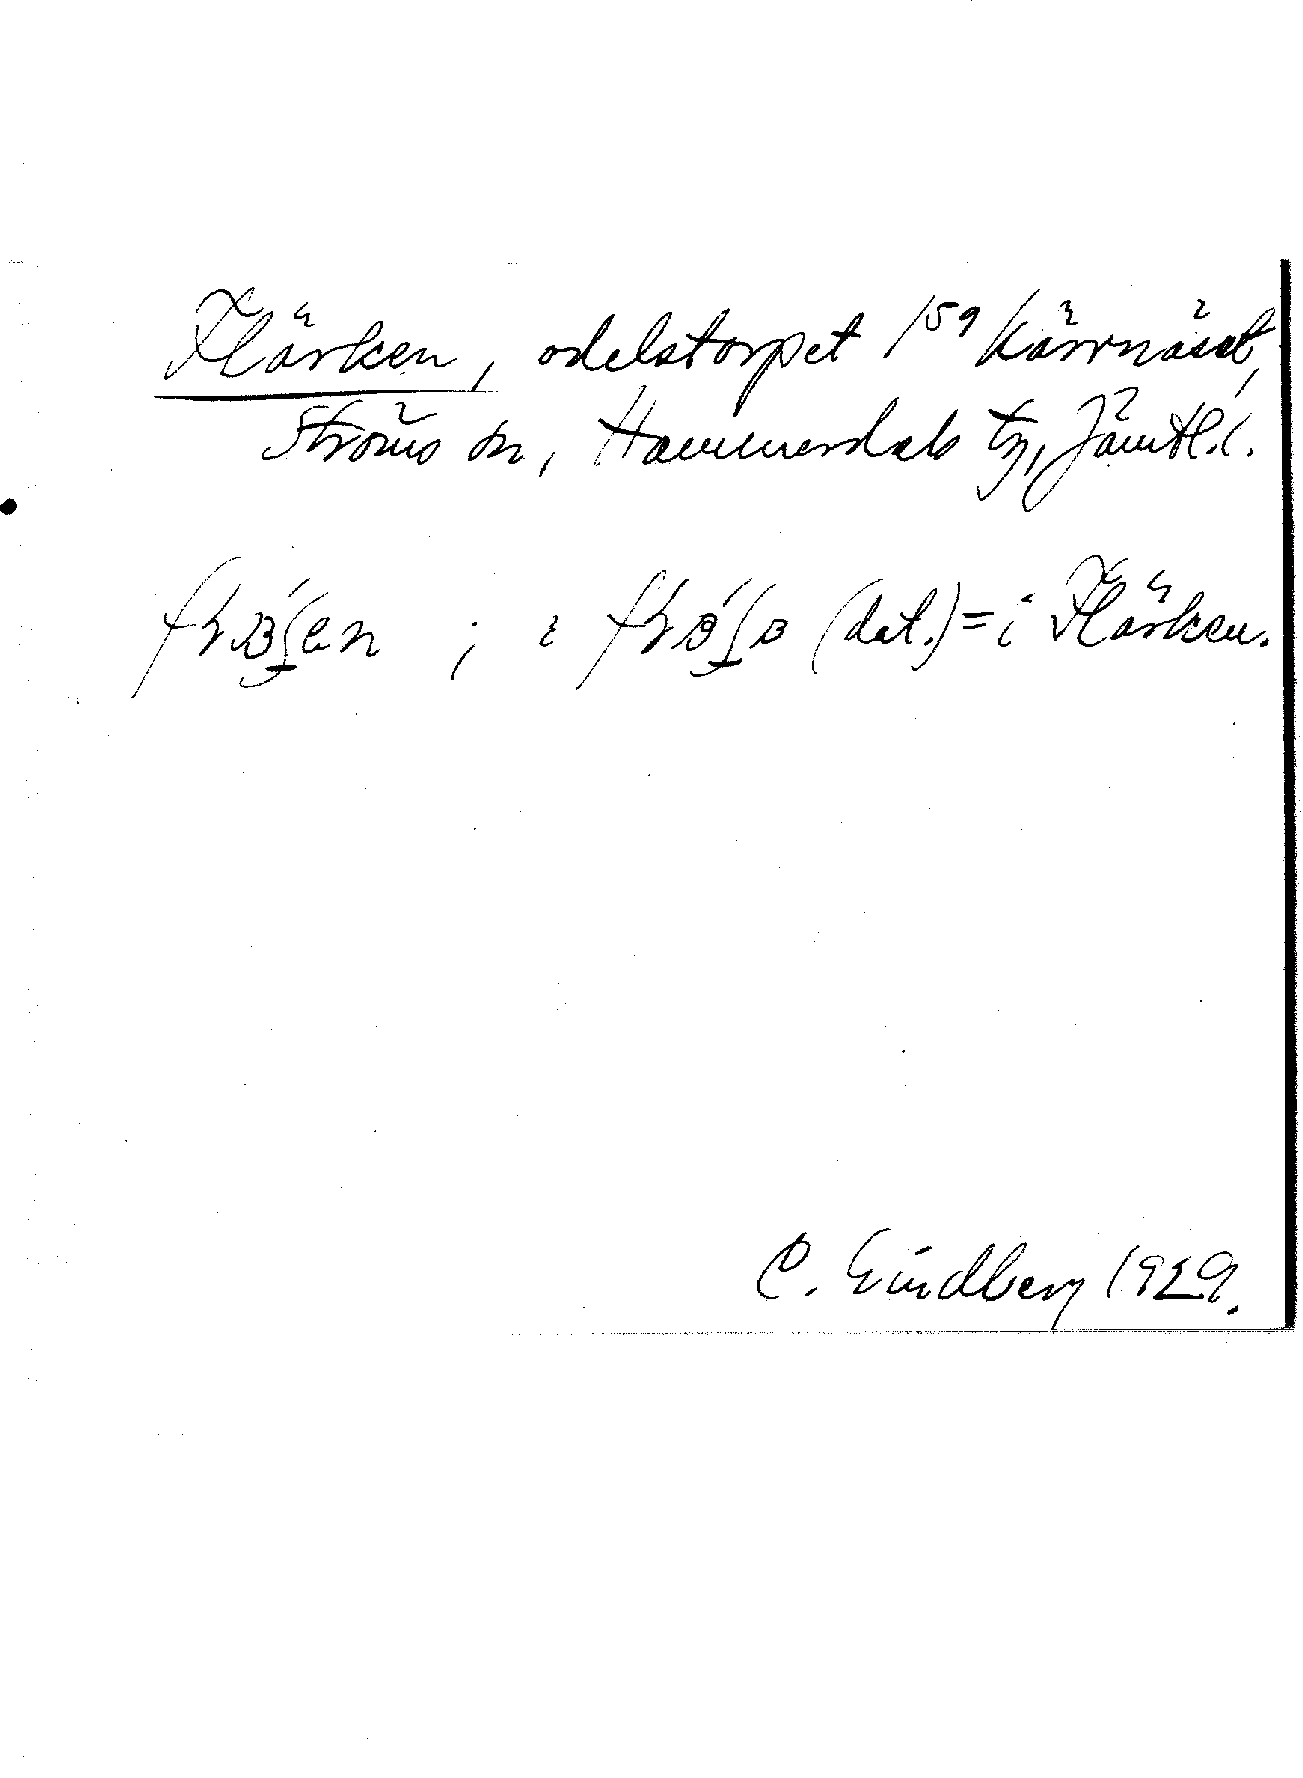 Flärken, odelstorpet 1⁵⁹ Kärrnäset,
Ströms sn, Hammerdals tg, Jämtl. l.
; i (dat.) = i Flärken.
C. Lindberg 1929.